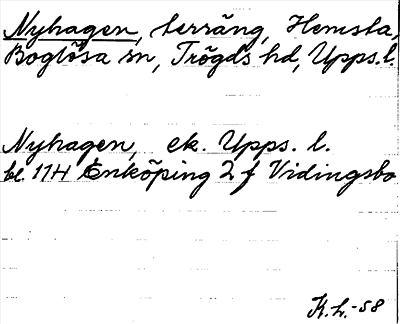 Nyhagen, terräng, Hemsta,
Boglösa sn, Trögds hd, Upps. l.
Nyhagen, ek. Upps. l.
bl. 11H Enköping 2 f Vidingsbo
K.L.-58